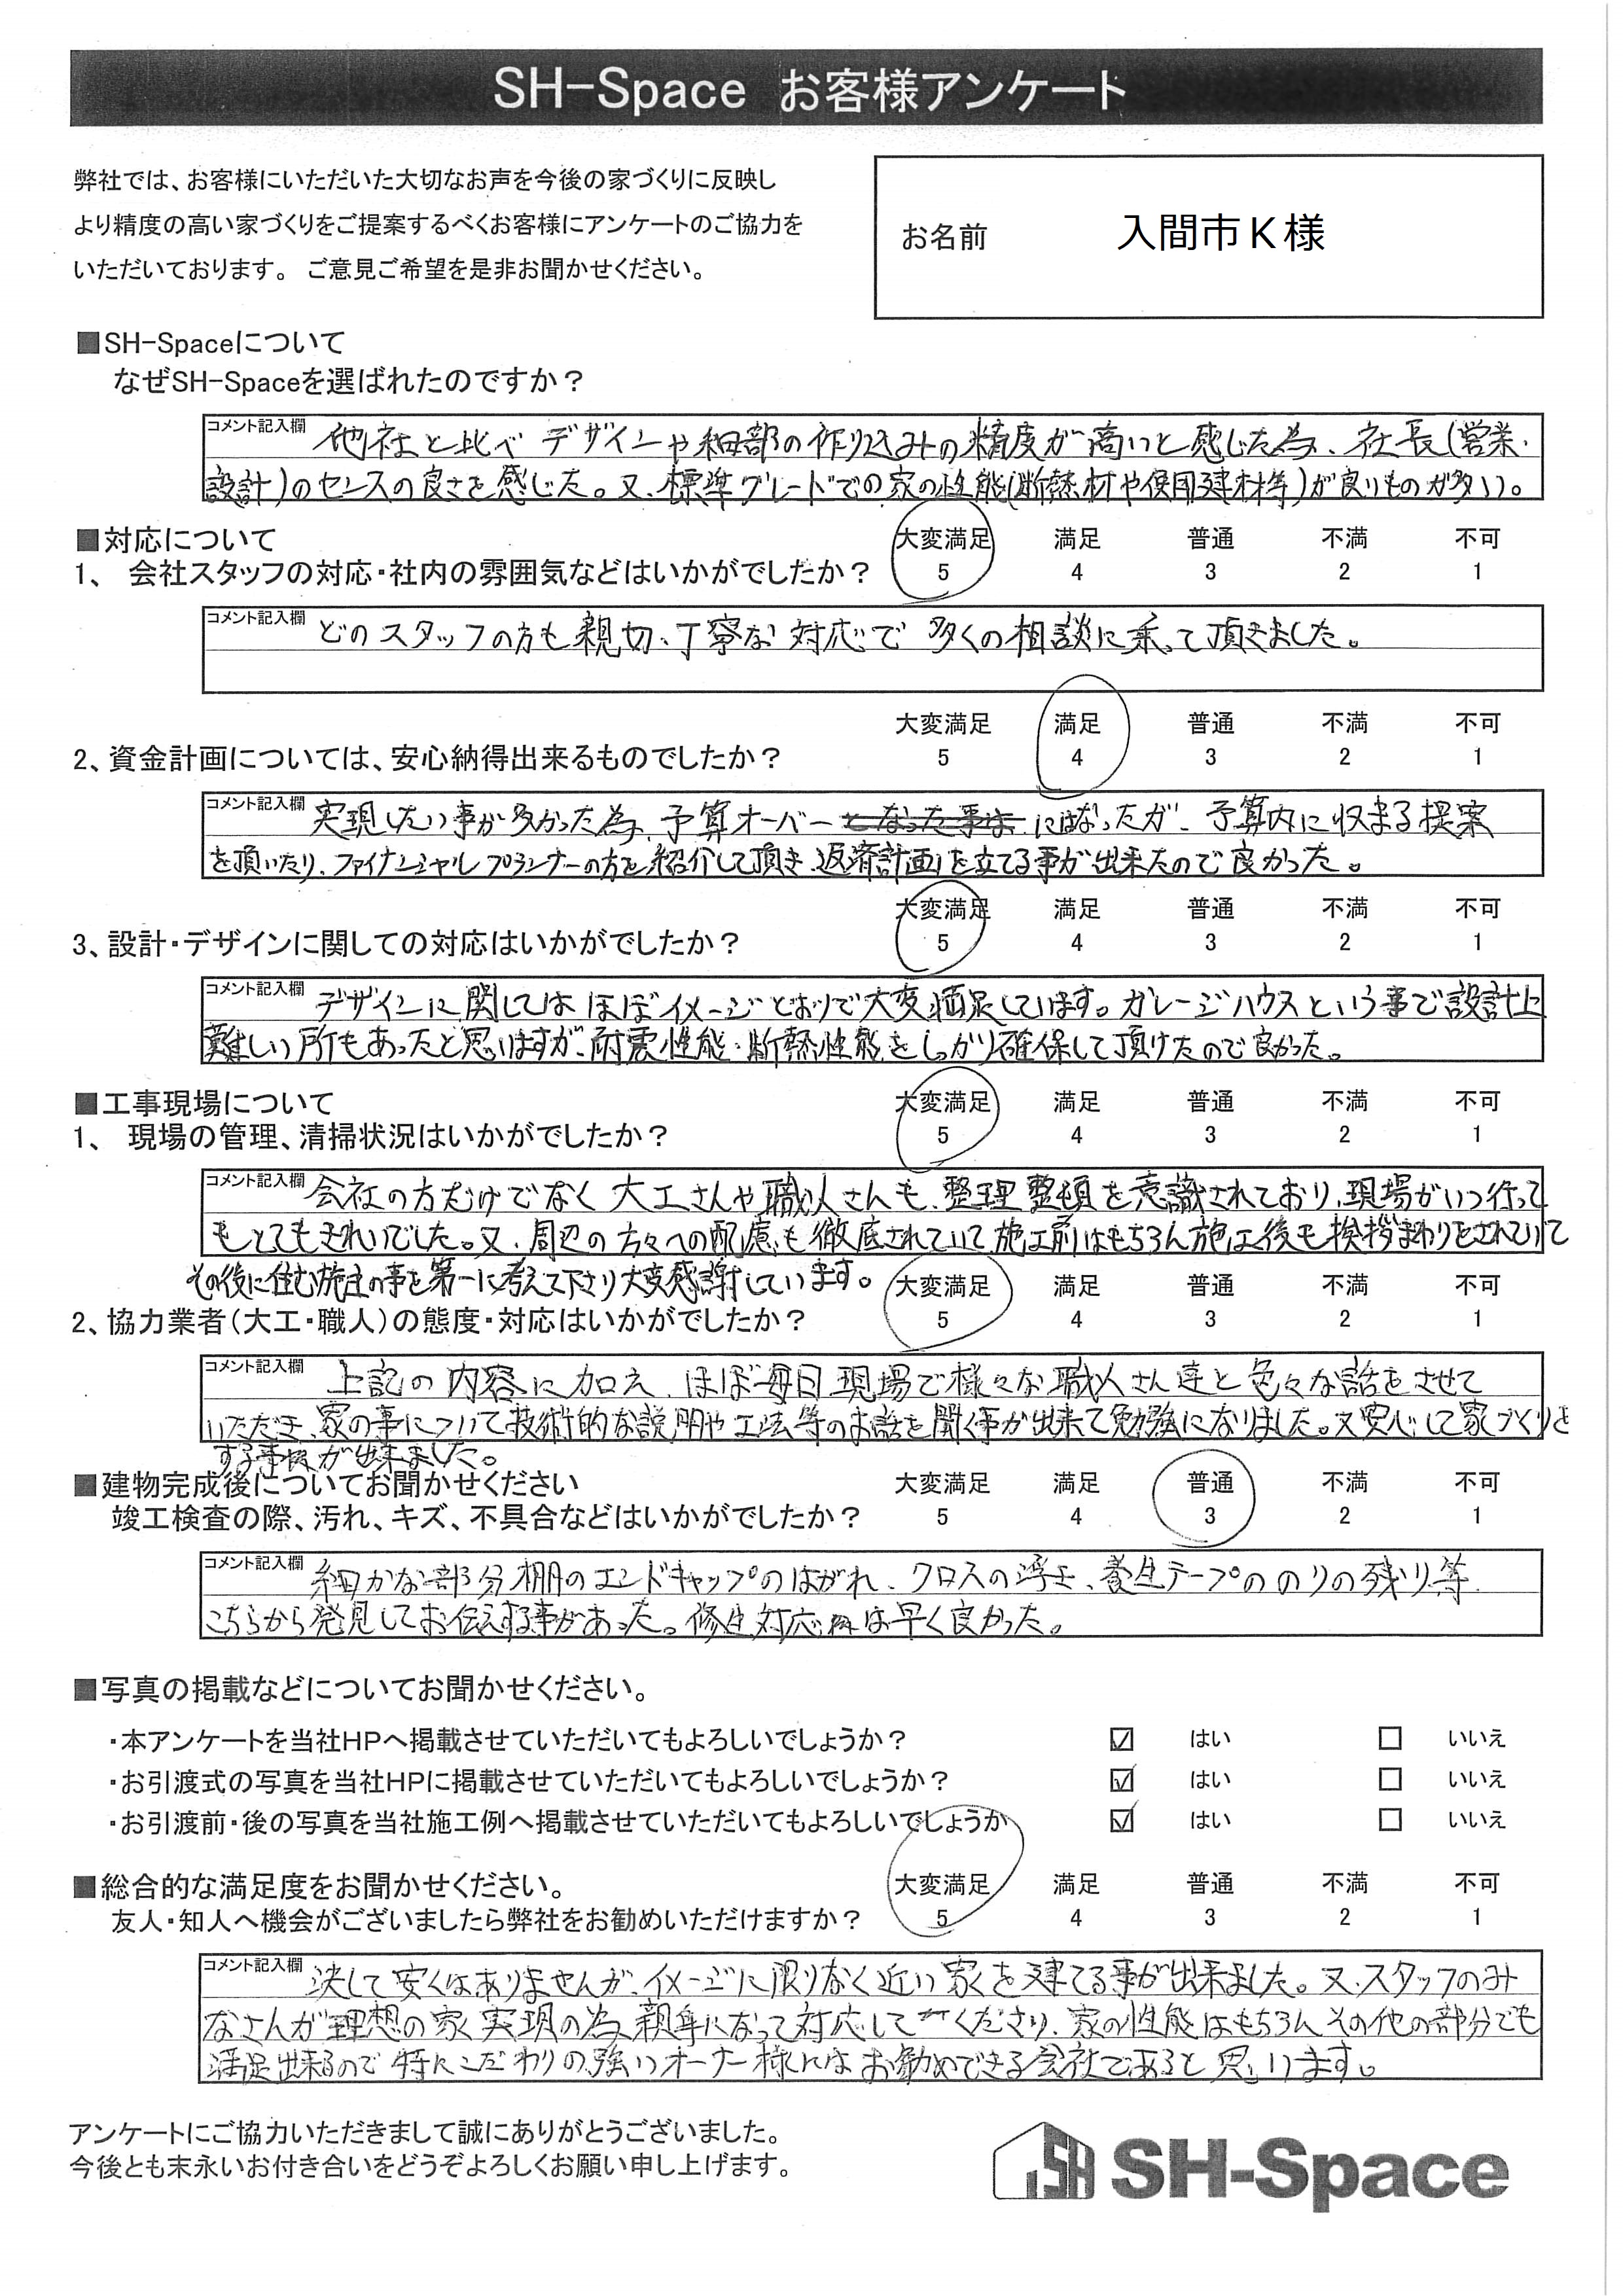 SH-Space お客様アンケート
弊社では、お客様にいただいた大切なお声を今後の家づくりに反映し
より精度の高い家づくりをご提案するべくお客様にアンケートのご協力を
いただいております。 ご意見ご希望を是非お聞かせください。
お名前 入間市K様
■SH-Spaceについて
なぜSH-Spaceを選ばれたのですか？
コメント記入欄 他社と比べ デザインや細部の作り込みの精度が高いと感じた為、社長(営業・
設計)のセンスの良さを感じた。又、標準グレードでの家の性能(断熱材や使用建材等)が良いものが多い。
■対応について 大変満足 満足 普通 不満 不可
1、 会社スタッフの対応・社内の雰囲気などはいかがでしたか？ 5 4 3 2 1
コメント記入欄 どのスタッフの方も親切、丁寧な対応で 多くの相談に乗って頂きました。
大変満足 満足 普通 不満 不可
2、資金計画については、安心納得出来るものでしたか？ 5 4 3 2 1
コメント記入欄 実現したい事が多かった為、予算オーバー となった事は にはなったが、予算内に収まる提案
を頂いたり、ファイナンシャルプランナーの方を紹介して頂き、返済計画を立てる事が出来たので良かった。
大変満足 満足 普通 不満 不可
3、設計・デザインに関しての対応はいかがでしたか？ 5 4 3 2 1
コメント記入欄 デザインに関してはほぼイメージどおりで大変満足しています。ガレージハウスという事で設計上
難しい所もあったと思いますが、耐震性能・断熱性能をしっかり確保して頂けたので良かった。
■工事現場について 大変満足 満足 普通 不満 不可
1、 現場の管理、清掃状況はいかがでしたか？ 5 4 3 2 1
コメント記入欄 会社の方だけでなく大工さんや職人さんも、整理整頓を意識されており、現場がいつ行って
もとてもきれいでした。又、周辺の方々への配慮も徹底されていて、施工前はもちろん施工後も挨拶まわりをされていて
その後に住む施主の事を第一に考えて下さり大変感謝しています。
大変満足 満足 普通 不満 不可
2、協力業者（大工・職人）の態度・対応はいかがでしたか？ 5 4 3 2 1
コメント記入欄 上記の内容に加え、ほぼ毎日現場で様々な職人さん達と色々な話をさせて
いただき、家の事について技術的な説明や工法等のお話を聞く事が出来て勉強になりました。又安心して家づくりを
する事が出来ました。
■建物完成後についてお聞かせください 大変満足 満足 普通 不満 不可
竣工検査の際、汚れ、キズ、不具合などはいかがでしたか？ 5 4 3 2 1
コメント記入欄 細かな部分 棚のエンドキャップのはがれ、クロスの浮き、養生テープののりの残り等、
こちらから発見してお伝えする事があった。修正対応は早く良かった。
■写真の掲載などについてお聞かせください。
・本アンケートを当社HPへ掲載させていただいてもよろしいでしょうか？ ☑ はい □ いいえ
・お引渡式の写真を当社HPに掲載させていただいてもよろしいでしょうか？ ☑ はい □ いいえ
・お引渡前・後の写真を当社施工例へ掲載させていただいてもよろしいでしょうか ☑ はい □ いいえ
■総合的な満足度をお聞かせください。 大変満足 満足 普通 不満 不可
友人・知人へ機会がございましたら弊社をお勧めいただけますか？ 5 4 3 2 1
コメント記入欄 決して安くはありませんが、イメージに限りなく近い家を建てる事が出来ました。又、スタッフのみ
なさんが理想の家実現の為、親身になって対応してくださり、家の性能はもちろんその他の部分でも
満足出来るので特にこだわりの強いオーナー様にはお勧めできる会社であると思います。
アンケートにご協力いただきまして誠にありがとうございました。
今後とも末永いお付き合いをどうぞよろしくお願い申し上げます。
SH SH-Space